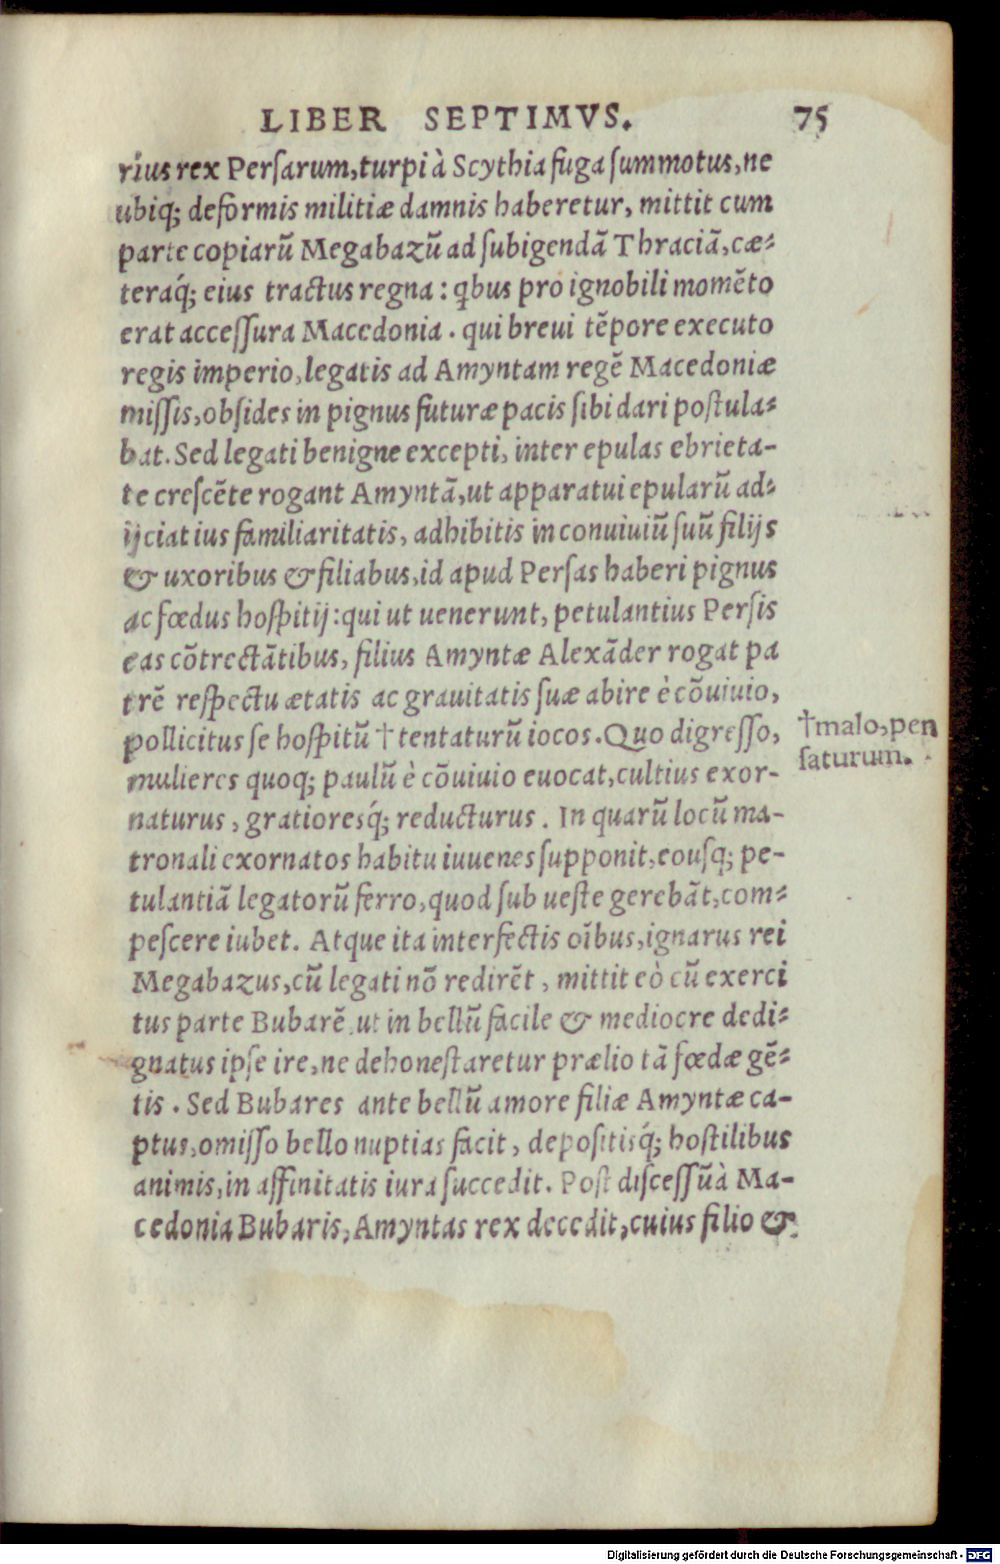 LIBER SEPTIMVS. 75
rius rex Persarum, turpi à Scythia fuga summotus, ne
ubiq; deformis militiæ damnis haberetur, mittit cum
parte copiarũ Megabazũ ad subigendã Thraciã, cæ-
teraq́; eius tractus regna: qbus pro ignobili momẽto
erat accessura Macedonia. qui breui tẽpore executo
regis imperio, legatis ad Amyntam regẽ Macedoniæ
missis, obsides in pignus futuræ pacis sibi dari postula-
bat. Sed legati benigne excepti, inter epulas ebrieta-
te crescẽte rogant Amyntã, ut apparatui epularũ ad-
ijciat ius familiaritatis, adhibitis in conuiuiũ suũ filijs
& uxoribus & filiabus, id apud Persas haberi pignus
ac fœdus hospitij: qui ut uenerunt, petulantius Persis
eas cõtrectãtibus, filius Amyntæ Alexãder rogat pa
trẽ respectu ætatis ac grauitatis suæ abire è cõuiuio,
pollicitus se hospitũ † tentaturũ iocos. Quo digresso,
†malo, pen
saturum.
mulieres quoq; paulũ è cõuiuio euocat, cultius exor-
naturus, gratioresq́; reducturus. In quarũ locũ ma-
tronali exornatos habitu iuuenes supponit, eousq; pe-
tulantiã legatorũ ferro, quod sub ueste gerebãt, com-
pescere iubet. Atque ita interfectis oĩbus, ignarus rei
Megabazus, cũ legati nõ redirẽt, mittit eò cũ exerci
tus parte Bubarẽ ut in bellũ facile & mediocre dedi-
gnatus ipse ire, ne dehonestaretur prælio tã fœdæ gẽ-
tis. Sed Bubares ante bellũ amore filiæ Amyntæ ca-
ptus, omisso bello nuptias facit, depositisq́; hostilibus
animis, in affinitatis iura succedit. Post discessũ à Ma-
cedonia Bubaris, Amyntas rex decedit, cuius filio &
Digitalisierung gefördert durch die Deutsche Forschungsgemeinschaft - DFG